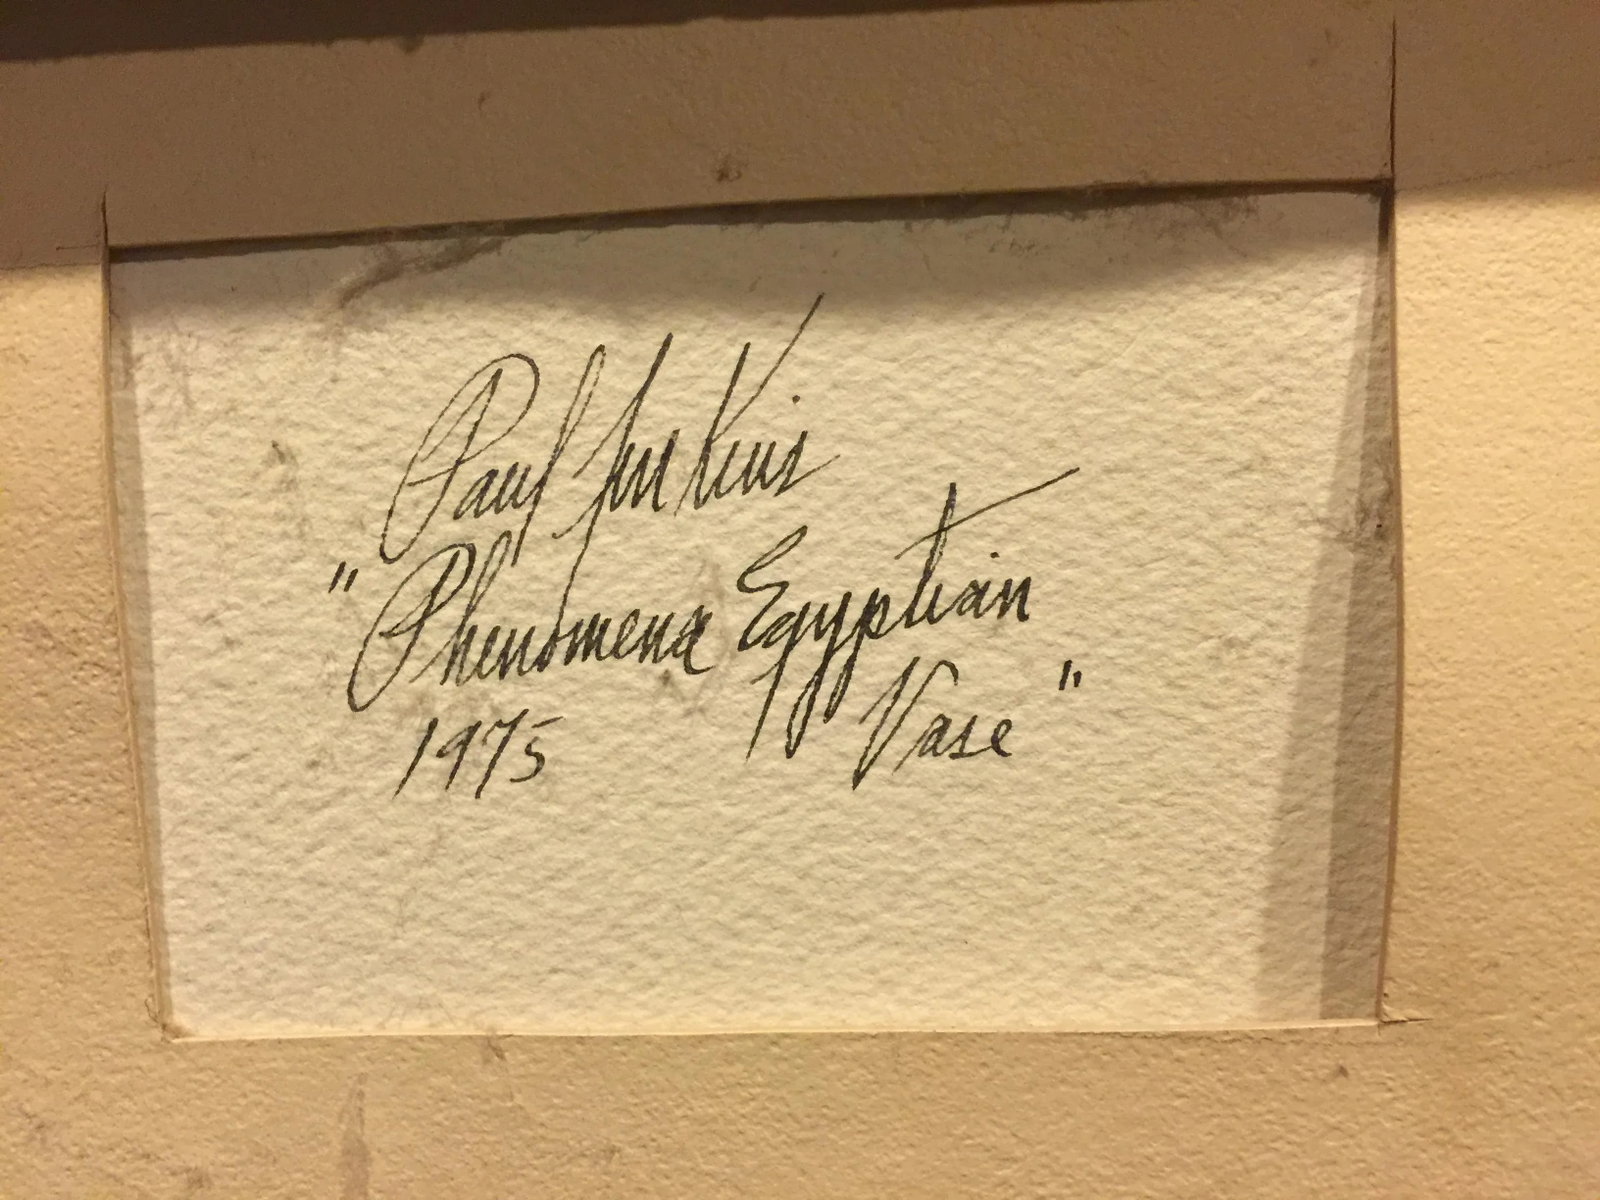 Paul Jenkins
"Phenomena Egyptian
1975 Vase"